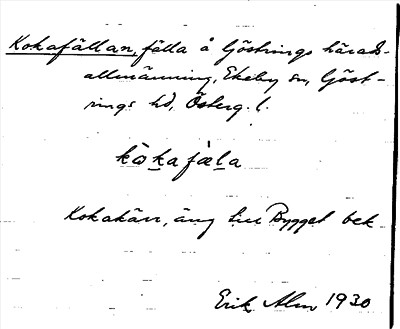 Kokafällan, fälla å Göstrings härads-
allmänning, Ekeby sn, Göst-
rings hd, Österg. l.
kòkafæla
Kokakärr, äng till Bygget bek
Erik Alm 1930